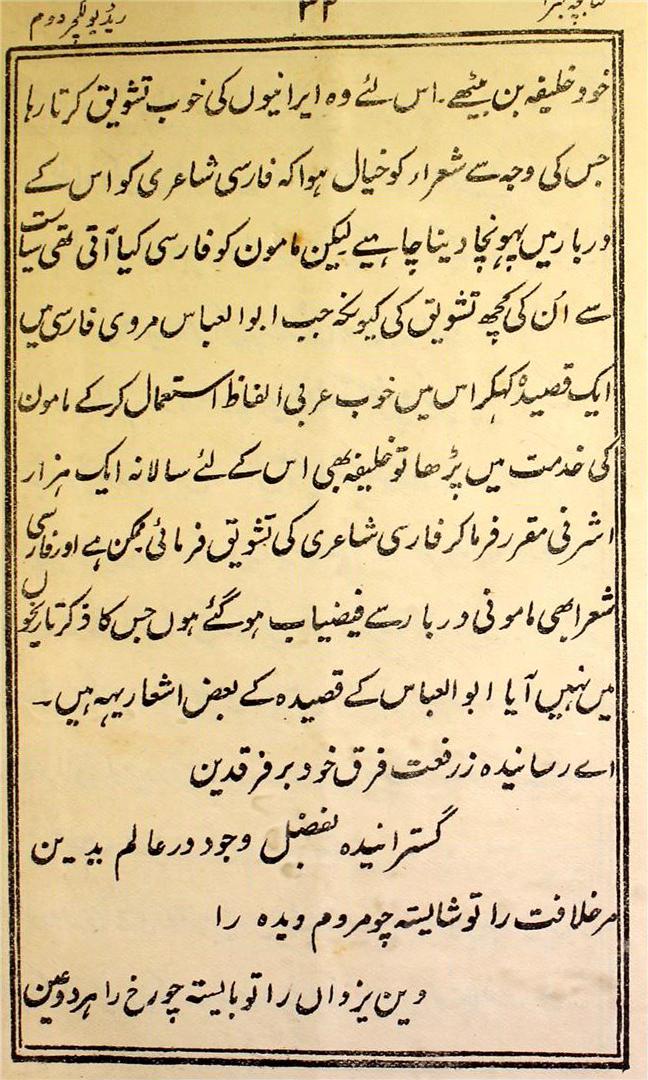 ریڈیو لکچر دوم
۳۲
خود خلیفہ بن بیٹھے۔ اس لئے وہ ایرانیوں کی خوب تشویق کرتا رہا
جس کی وجہ سے شعراء کو خیال ہوا کہ فارسی شاعری کو اس کے
دربار میں پہونچا دینا چاہیے لیکن مامون کو فارسی کیا آتی تھی سیاست
سے اُن کی کچھ تشویق کی کیونکہ جب ابوالعباس مروی فارسی میں
ایک قصیدہ کہکر اس میں خوب عربی الفاظ استعمال کر کے مامون
کی خدمت میں پڑھا تو خلیفہ بھی اس کے لئے سالانہ ایک ہزار
اشرفی مقرر فرما کر فارسی شاعری کی تشویق فرمائی ممکن ہے اور فارسی
شعرا بھی مامونی دربار سے فیضیاب ہو گئے ہوں جس کا ذکر تاریخوں
میں نہیں آیا ابوالعباس کے قصیدہ کے بعض اشعار یہہ ہیں۔
اے رسانیدہ زرفعت فرق خود بر فرقدین
گسترانیدہ بفضل وجود در عالم یدین
مر خلافت را تو شایستہ چو مردم دیدہ را
دین یزداں را تو بایستہ چو رخ را ہر دو عین